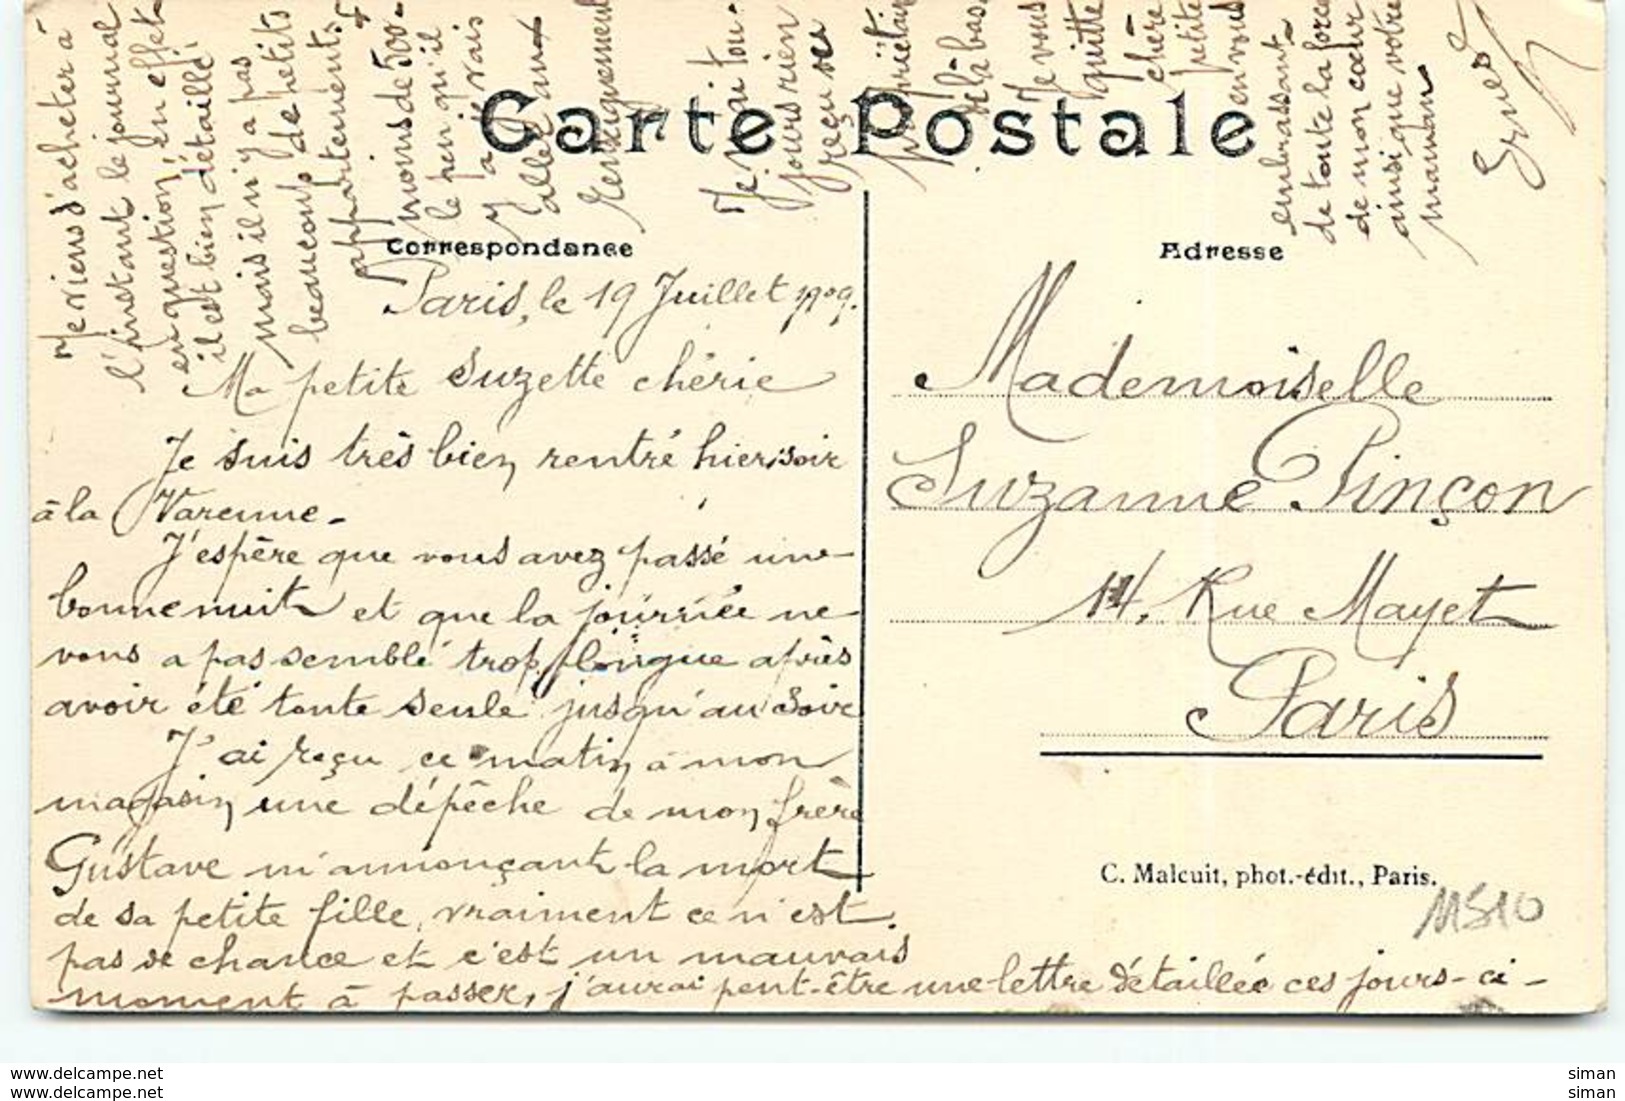 Carte Postale
Correspondance
Paris, le 19 Juillet 1909.
Ma petite Suzette chérie
Je suis très bien rentré hier soir
à la Varenne.
J'espère que vous avez passé une
bonne nuit et que la journée ne
vous a pas semblé trop longue après
avoir été toute seule jusqu'au soir
J'ai reçu ce matin à mon
magasin une dépêche de mon frère
Gustave m'annonçant la mort
de sa petite fille, vraiment ce n'est
pas de chance et c'est un mauvais
moment à passer, j'aurai peut-être une lettre détaillée ces jours-ci -
Je viens d'acheter à
l'instant le journal
en question, en effet
il est bien détaillé
mais il n'y a pas
beaucoup de petits
appartements
moins de 500 -
le peu qu'il
y a je vais
aller aux
renseignements
Je n'ai tou-
jours rien
reçu des
propriétaires
de là-bas.
Je vous
quitte
chère
petite
en vous
embrassant
de toute la force
de mon cœur
ainsi que votre
maman
Ernest
Adresse
Mademoiselle
Suzanne Pinçon
14, Rue Mayet
Paris
C. Malcuit, phot.-édit., Paris.
MS10
www.delcampe.net
www.delcampe.net
siman
siman